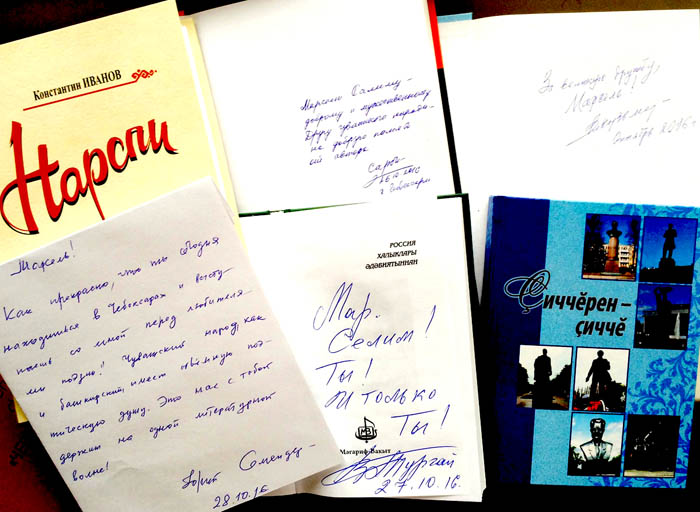 Константин ИВАНОВ
Нарспи
Марселю Салиму -
доброму и мужественному
другу чувашского народа -
на добрую память
от автора
26.10.2016
г. Чебоксары
За великую дружбу,
Марсель!
Октябрь 2016 г
Марсель!
Как прекрасно, что ты сегодня
находишься в Чебоксарах и высту-
паешь со мной перед любителя-
ми поэзии! Чувашский народ, как
и башкирский, имеет объёмную поэ-
тическую душу. Это нас с тобой
держит на одной литературной
волне!
Юрий Семендер -
28.10.16
РОССИЯ
ХАЛЫКЛАРЫ
ӘДӘБИЯТЫННАН
Мар.
Селим!
Ты!
И только
Ты!
Мәгариф-Вакыт
Тургай
27.10.16.
Ҫиччӗрен -
ҫиччӗ